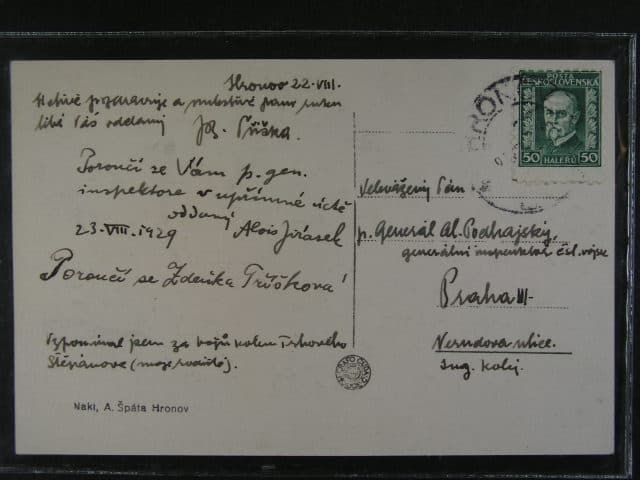 Hronov 22.VIII.
Uctivě pozdravuje a milostivé paní ruku
líbá Váš oddaný
Jos. Tříška.
Poroučí se Vám p. gen.
inspektore v upřímné úctě
oddaný
23.VIII.1929 Alois Jirásek
Poroučí se Zdeňka Tříšková
Vzpomínal jsem za bojů kolem Trhového
Štěpánova (moje rodiště).
Nakl. A. Špáta Hronov
POŠTA
ČESKOSLOVENSKÁ
50 HALÉŘŮ 50
HRONOV
Velevážený Pán
p. Generál Al. Podhajský,
generální inspektor čsl. vojsk
Praha III-
Nerudova ulice.
Ing. kolej.